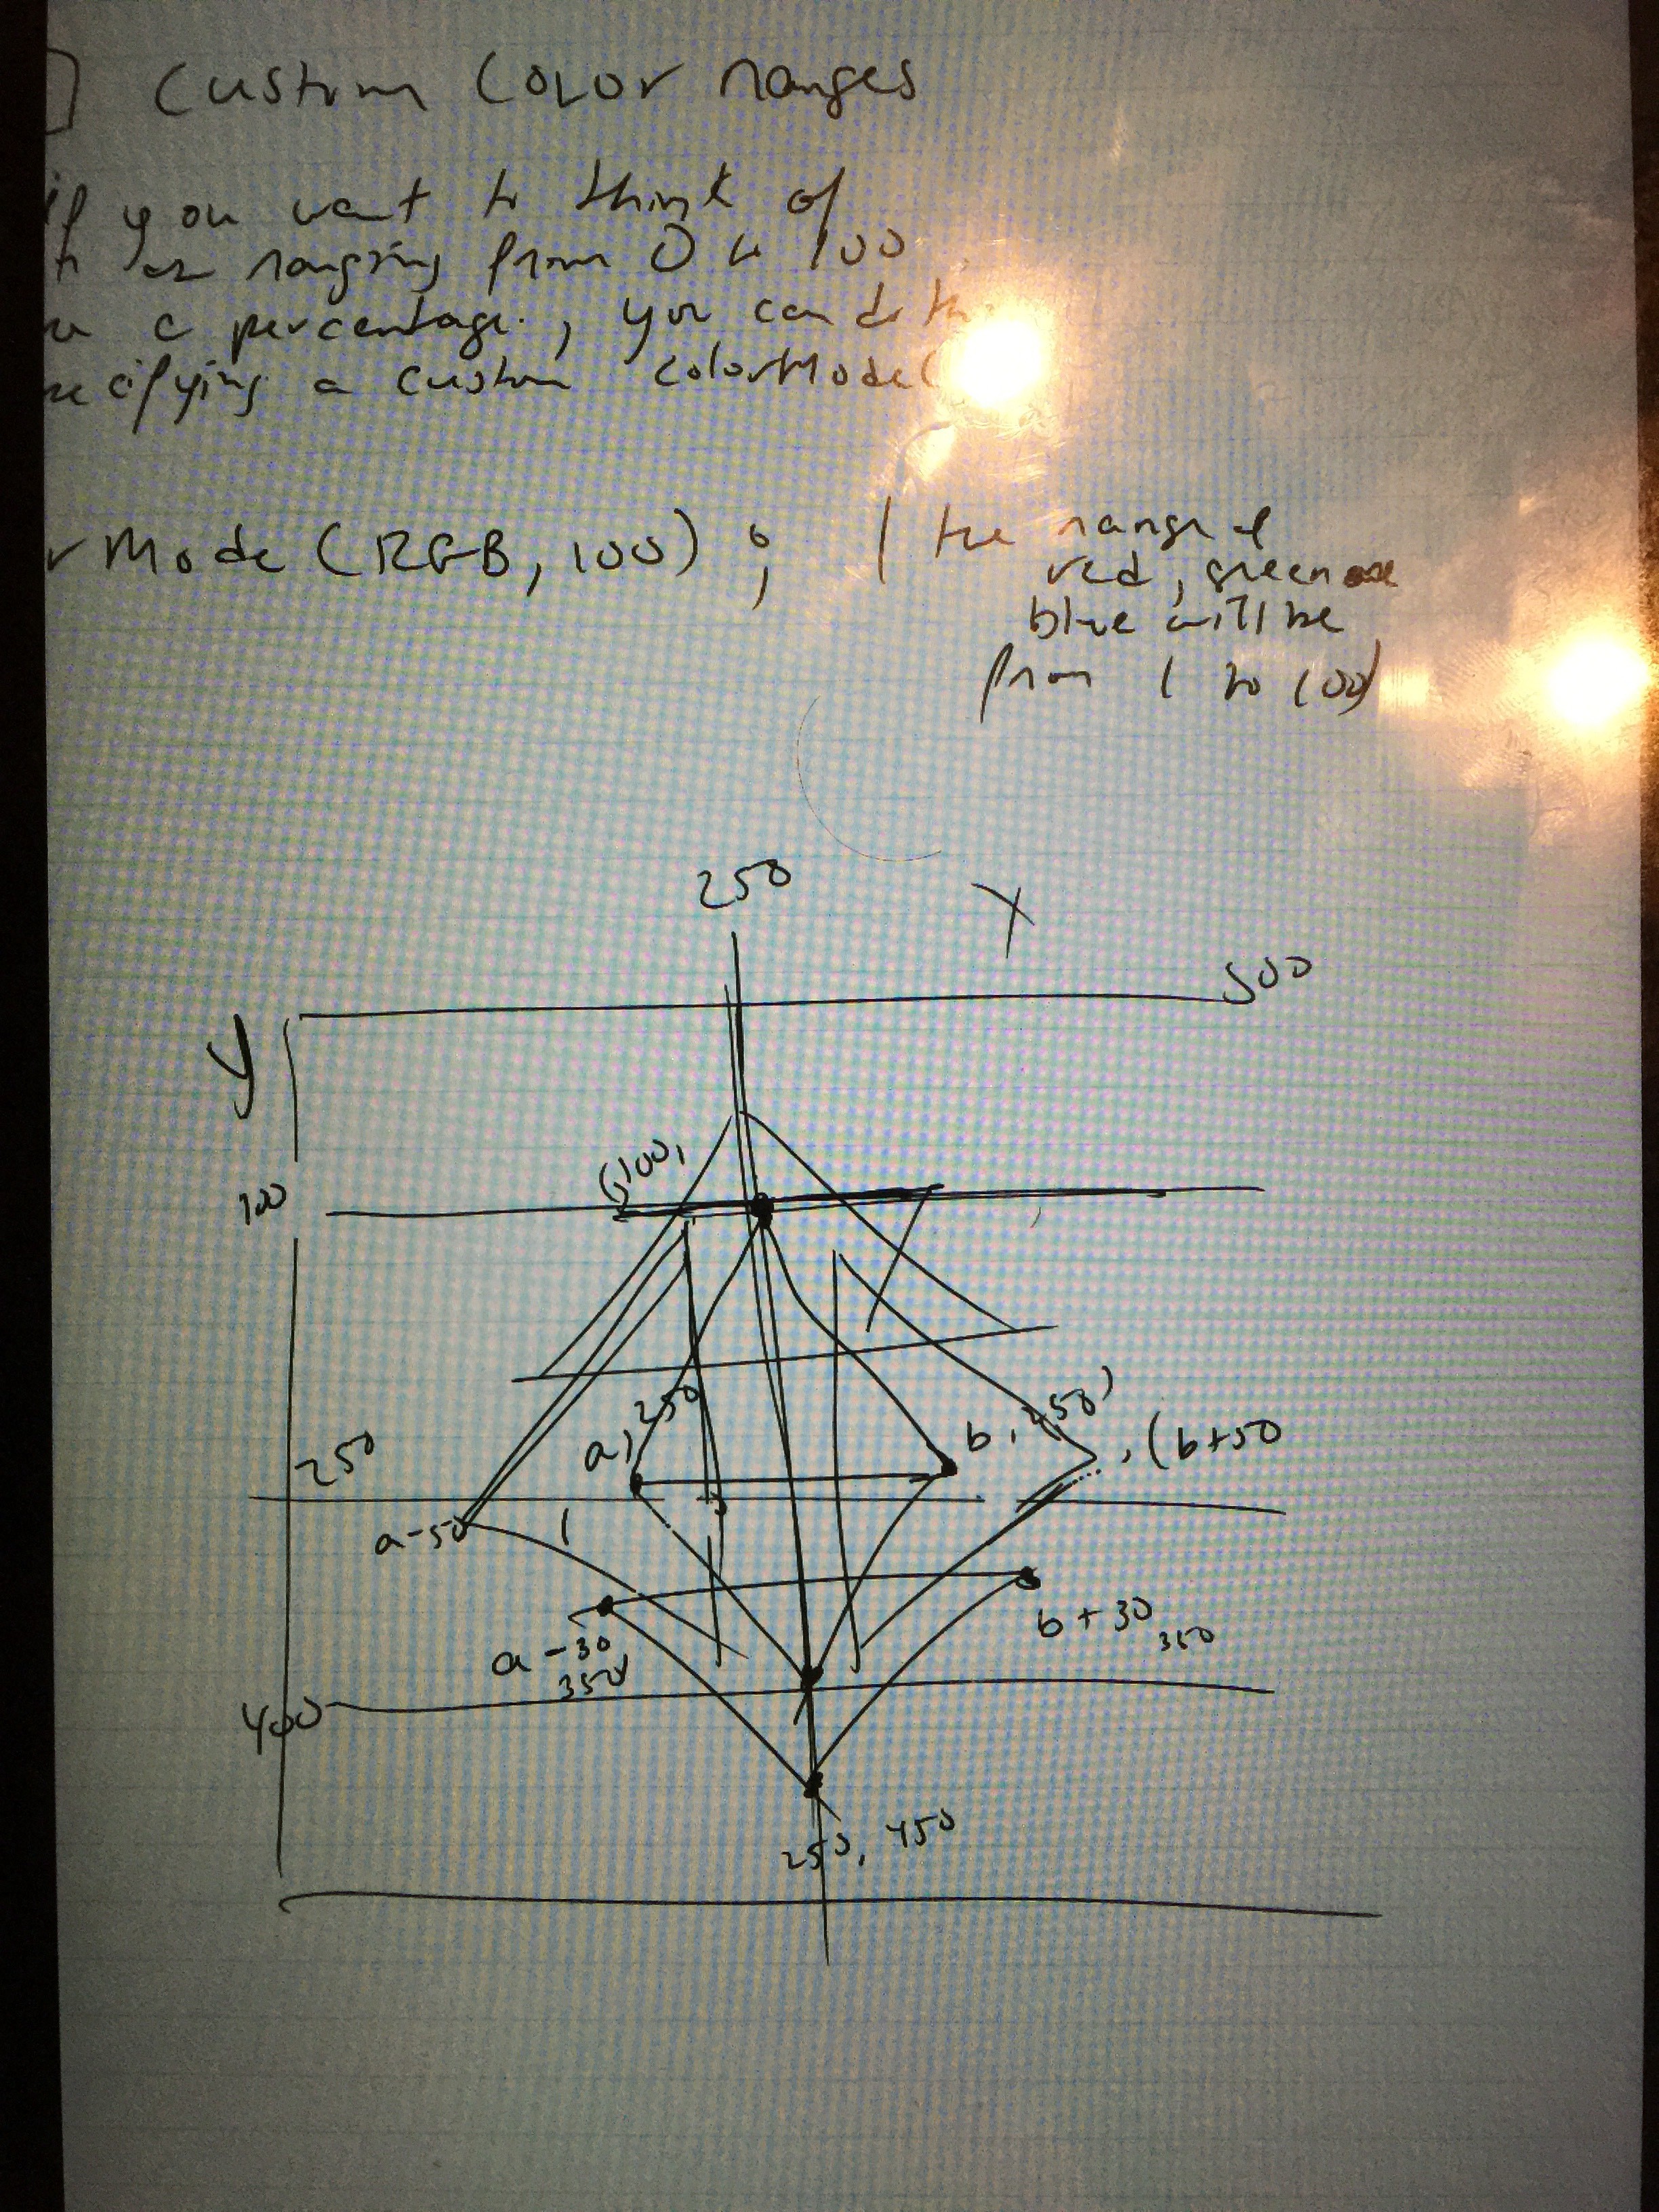 ] Custom Color ranges
If you want to think of
ranging from 0 to 100
a percentage, you can do th
ecifying a custom colorModel
r Mode (RGB, 100) ;
the range of
red, green
blue will be
from 1 to 100)
250
X
500
y
100
(100,
a, 250
b, 250)
, (b+50
250
a-50
a-30
350
b+30
350
400
250, 450